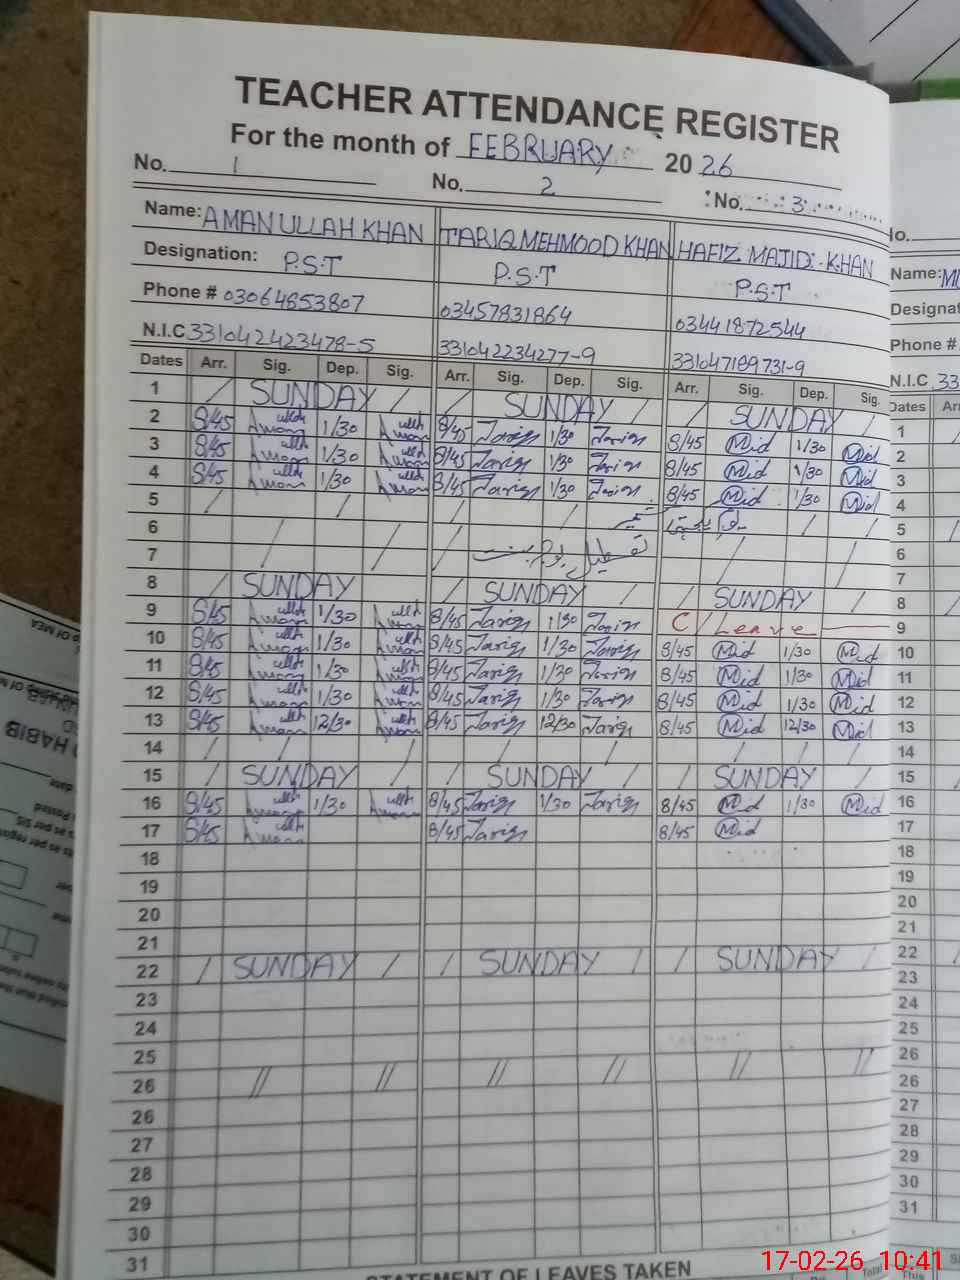 TEACHER ATTENDANCE REGISTER
For the month of FEBRUARY 2026
No. 1 No. 2 No. 3
Name: AMAN ULLAH KHAN TARIQ MEHMOOD KHAN HAFIZ MAJID KHAN
Designation: P.S.T P.S.T P.S.T
Phone # 03064853807 03457831864 03441872544
N.I.C 331042423478-5 331042234277-9 331047189731-9
Dates Arr. Sig. Dep. Sig. Arr. Sig. Dep. Sig. Arr. Sig. Dep. Sig.
1 / SUNDAY / / SUNDAY / / SUNDAY /
2 8/45 Aman ullah 1/30 Aman ullah 8/45 Tariq 1/30 Tariq 8/45 Mjd 1/30 Mjd
3 8/45 Aman ullah 1/30 Aman ullah 8/45 Tariq 1/30 Tariq 8/45 Mjd 1/30 Mjd
4 8/45 Aman ullah 1/30 Aman ullah 8/45 Tariq 1/30 Tariq 8/45 Mjd 1/30 Mjd
5 / / / / / /
6 / / / /
7 / / / تعطیل / /
8 / SUNDAY / / SUNDAY / / SUNDAY /
9 8/45 Aman ullah 1/30 Aman ullah 8/45 Tariq 1/30 Tariq C/Leave
10 8/45 Aman ullah 1/30 Aman ullah 8/45 Tariq 1/30 Tariq 8/45 Mjd 1/30 Mjd
11 8/45 Aman ullah 1/30 Aman ullah 8/45 Tariq 1/30 Tariq 8/45 Mjd 1/30 Mjd
12 8/45 Aman ullah 1/30 Aman ullah 8/45 Tariq 1/30 Tariq 8/45 Mjd 1/30 Mjd
13 8/45 Aman ullah 12/30 Aman ullah 8/45 Tariq 12/30 Tariq 8/45 Mjd 12/30 Mjd
14 / / / / / / / / / / /
15 / SUNDAY / / SUNDAY / / SUNDAY /
16 8/45 Aman ullah 1/30 Aman ullah 8/45 Tariq 1/30 Tariq 8/45 Mjd 1/30 Mjd
17 8/45 Aman ullah 8/45 Tariq 8/45 Mjd
18
19
20
21
22 / SUNDAY / / SUNDAY / / SUNDAY /
23
24
25
26 // // // // // //
26
27
28
29
30
31
STATEMENT OF LEAVES TAKEN
No.
Name:
Phone #
N.I.C 33
Dates
1
2
3
4
5
6
7
8
9
10
11
12
13
14
15
16
17
18
19
20
21
22
23
24
25
26
26
27
28
29
30
31
Total
This
HABIB
17-02-26 10:41